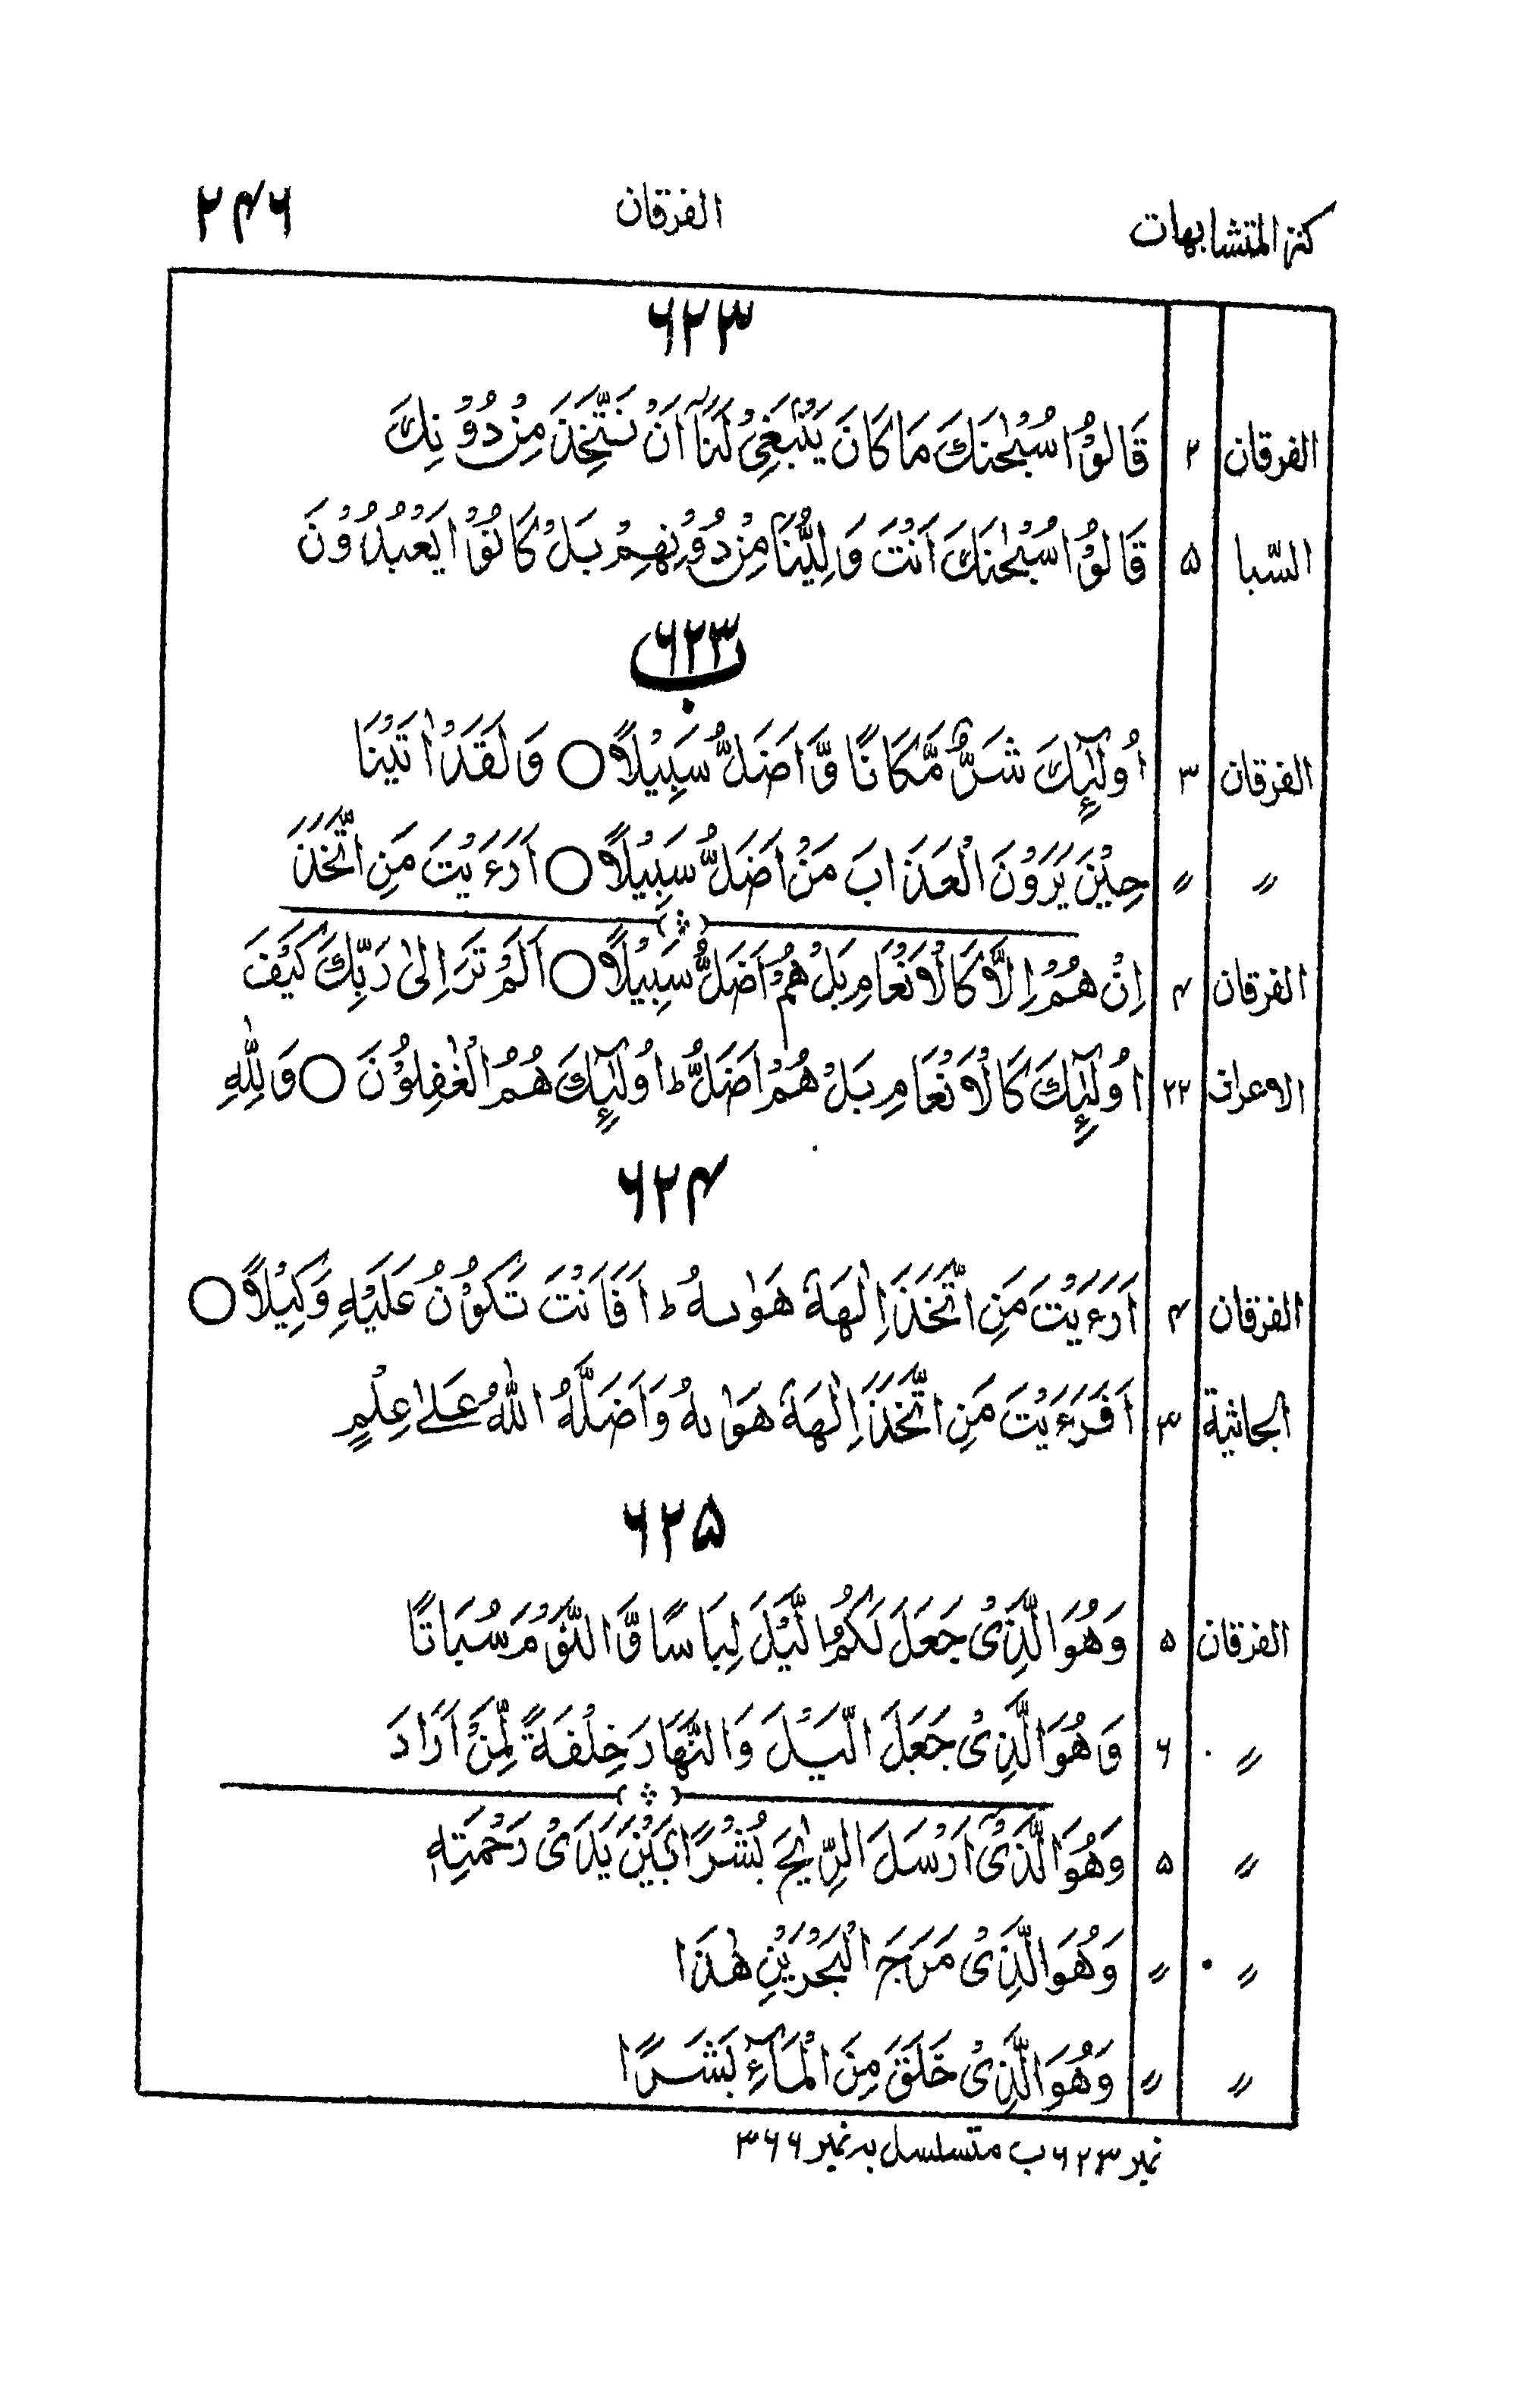 كنز المتشابهات الفرقان ۲۴۶
۶۲۳
الفرقان ۲ قَالُوْا سُبْحٰنَكَ مَا كَانَ يَنْۢبَغِيْ لَنَآ اَنْ نَّتَّخِذَ مِنْ دُوْنِكَ
السّبا ۵ قَالُوْا سُبْحٰنَكَ اَنْتَ وَلِيُّنَا مِنْ دُوْنِهِمْ بَلْ كَانُوْا يَعْبُدُوْنَ
۶۲۳ ب
الفرقان ۳ اُولٰٓئِكَ شَرٌّ مَّكَانًا وَّاَضَلُّ سَبِيْلًا ○ وَلَقَدْ اٰتَيْنَا
〃 〃 حِيْنَ يَرَوْنَ الْعَذَابَ مَنْ اَضَلُّ سَبِيْلًا ○ اَرَءَيْتَ مَنِ اتَّخَذَ
الفرقان ۴ اِنْ هُمْ اِلَّا كَالْاَنْعَامِ بَلْ هُمْ اَضَلُّ سَبِيْلًا ○ اَلَمْ تَرَ اِلٰى رَبِّكَ كَيْفَ
الاعراف ۲۲ اُولٰٓئِكَ كَالْاَنْعَامِ بَلْ هُمْ اَضَلُّ ؕ اُولٰٓئِكَ هُمُ الْغٰفِلُوْنَ ○ وَلِلّٰهِ
۶۲۴
الفرقان ۴ اَرَءَيْتَ مَنِ اتَّخَذَ اِلٰهَهٗ هَوٰىهُ ؕ اَفَاَنْتَ تَكُوْنُ عَلَيْهِ وَكِيْلًا ○
الجاثية ۳ اَفَرَءَيْتَ مَنِ اتَّخَذَ اِلٰهَهٗ هَوٰىهُ وَاَضَلَّهُ اللّٰهُ عَلٰى عِلْمٍ
۶۲۵
الفرقان ۵ وَهُوَ الَّذِيْ جَعَلَ لَكُمُ الَّيْلَ لِبَاسًا وَّالنَّوْمَ سُبَاتًا
〃 ۶ وَهُوَ الَّذِيْ جَعَلَ الَّيْلَ وَالنَّهَارَ خِلْفَةً لِّمَنْ اَرَادَ
〃 ۵ وَهُوَ الَّذِيْٓ اَرْسَلَ الرِّيٰحَ بُشْرًاۢ بَيْنَ يَدَيْ رَحْمَتِهٖ
〃 〃 وَهُوَ الَّذِيْ مَرَجَ الْبَحْرَيْنِ هٰذَا
〃 〃 وَهُوَ الَّذِيْ خَلَقَ مِنَ الْمَآءِ بَشَرًا
نمبر ۶۲۳ ب متسلسل بہ نمبر ۳۶۶